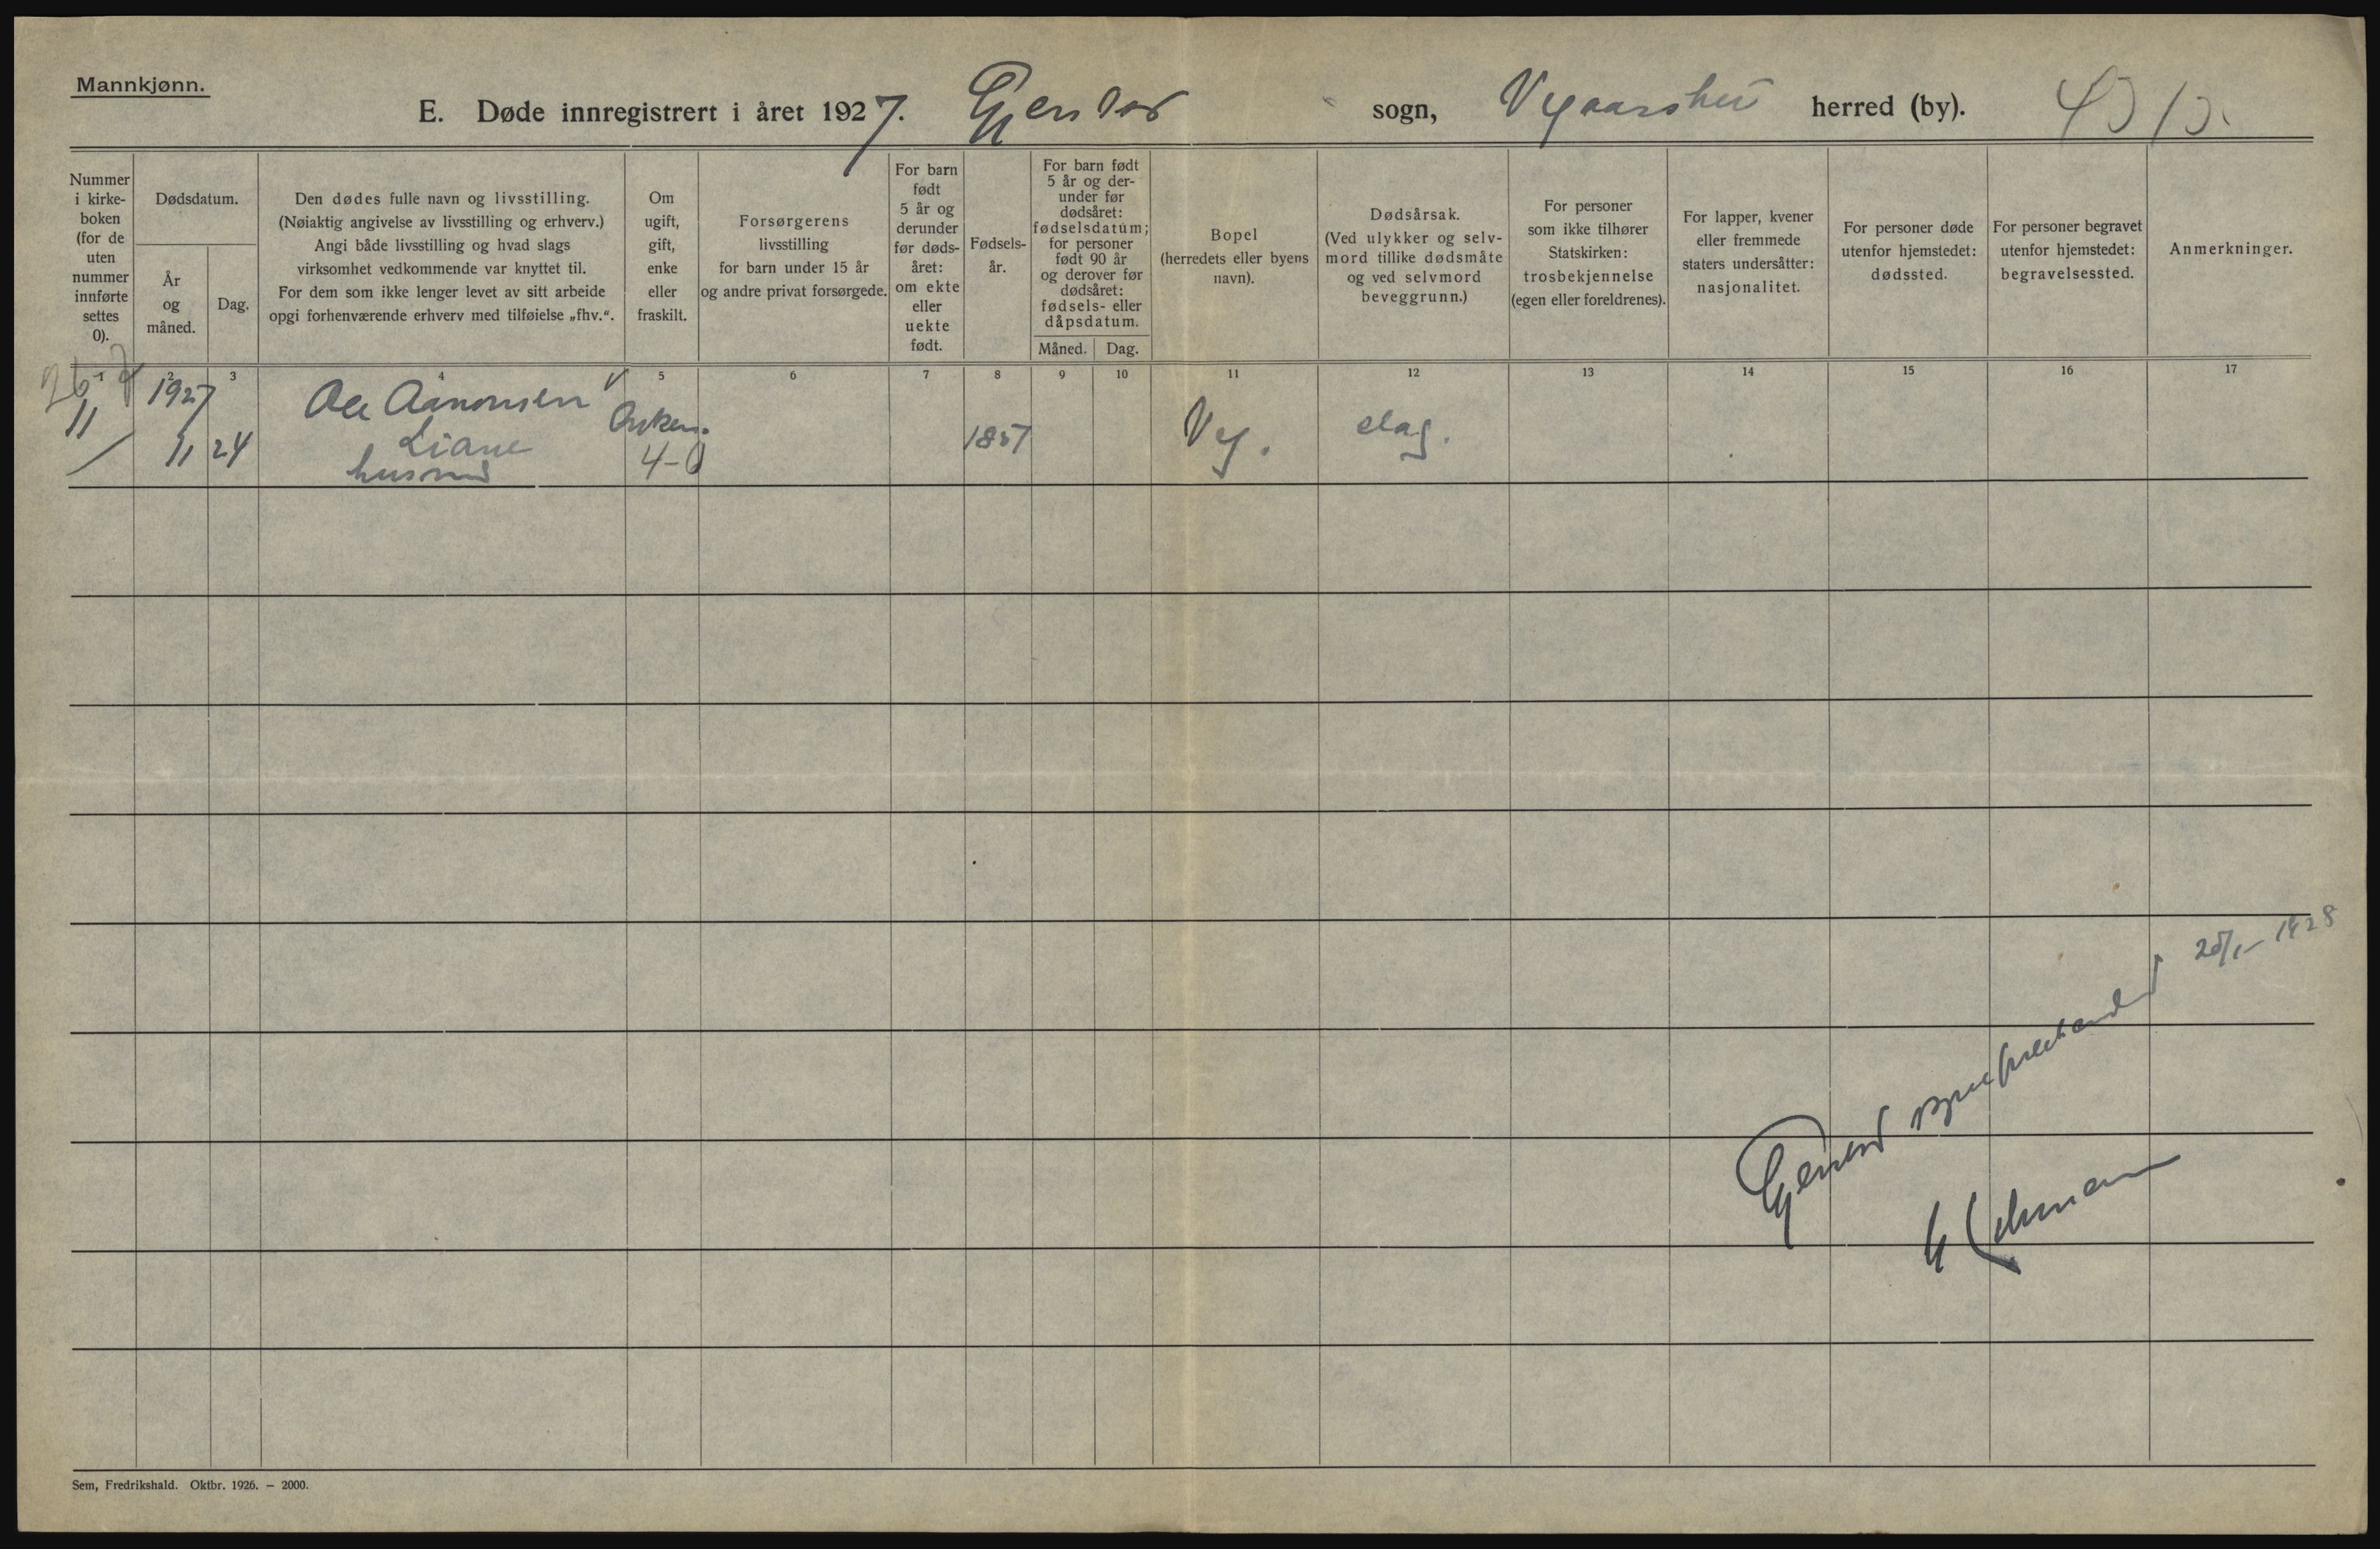 Mannkjønn.
E. Døde innregistrert i året 1927. Gjerstad sogn, Vegaarshei herred (by).
Nummer i kirke- boken (for de uten nummer innførte settes 0).
Dødsdatum.
År og måned.
Dag.
Den dødes fulle navn og livsstilling.
(Nøiaktig angivelse av livsstilling og erhverv.)
Angi både livsstilling og hvad slags
virksomhet vedkommende var knyttet til.
For dem som ikke lenger levet av sitt arbeide
opgi forhenværende erhverv med tilføielse „fhv.“.
Om
ugift,
gift,
enke
eller
fraskilt.
Forsørgerens
livsstilling
for barn under 15 år
og andre privat forsørgede.
For barn
født
5 år og
derunder
før døds-
året:
om ekte
eller
uekte
født.
Fødsels-
år.
For barn født
5 år og der-
under før
dødsåret:
fødselsdatum;
for personer
født 90 år
og derover før
dødsåret:
fødsels- eller
dåpsdatum.
Måned. Dag.
Bopel
(herredets eller byens
navn).
Dødsårsak.
(Ved ulykker og selv-
mord tillike dødsmåte
og ved selvmord
beveggrunn.)
For personer
som ikke tilhører
Statskirken:
trosbekjennelse
(egen eller foreldrenes).
For lapper, kvener
eller fremmede
staters undersåtter:
nasjonalitet.
For personer døde
utenfor hjemstedet:
dødssted.
For personer begravet
utenfor hjemstedet:
begravelsessted.
Anmerkninger.
1 2 3 4 5 6 7 8 9 10 11 12 13 14 15 16 17
11 1927 Aanonsen
11 24 Liane 4-0 1857 Veg. slag.
husmd
25/1- 1928
Sem, Fredrikshald. Oktbr. 1926. — 2000.